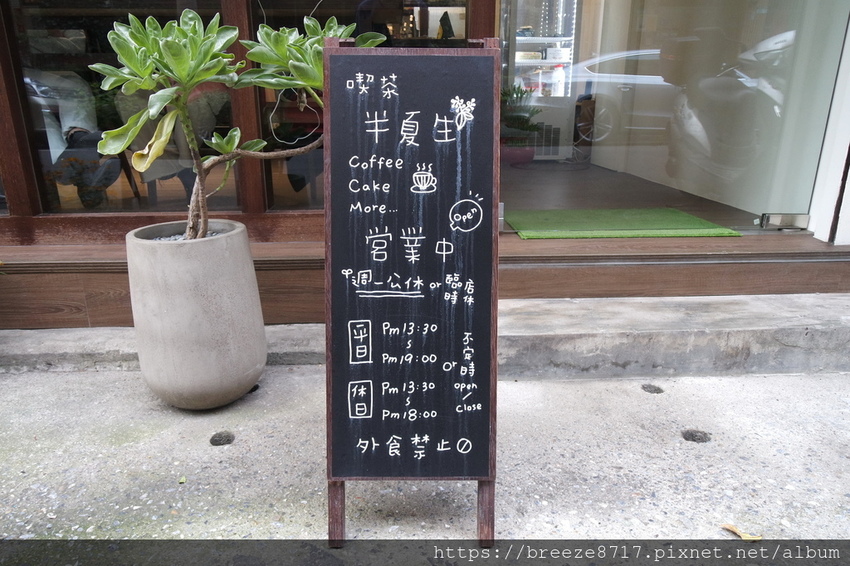 喫茶
半夏生
Coffee
Cake
More...
Open
営業中
週一公休 or 臨時店休
平日 Pm 13:30
~
Pm 19:00
休日 Pm 13:30
~
Pm 18:00
or 不定時
open
/
close
外食禁止
https://breeze8717.pixnet.net/album